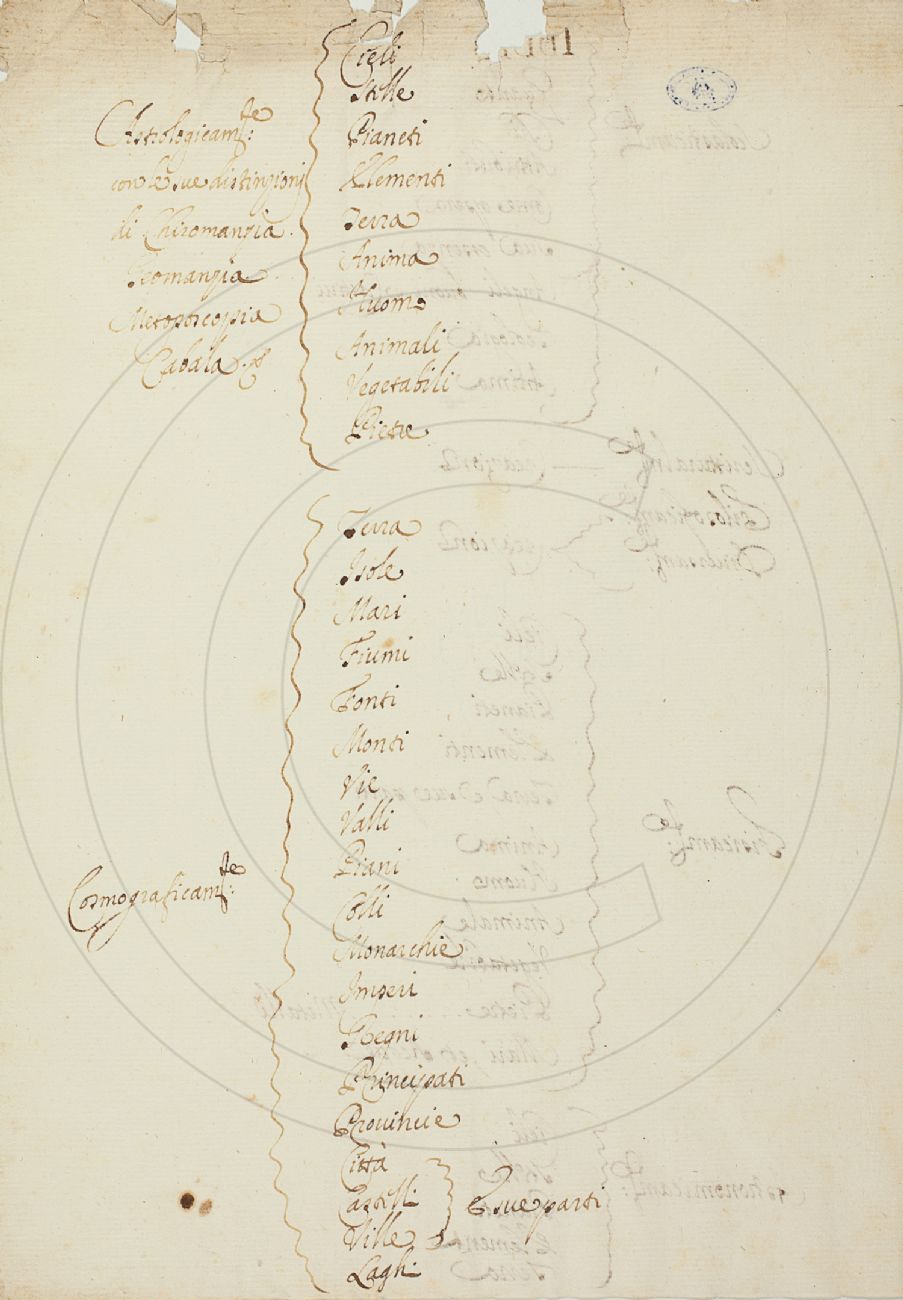 Astrologicam.te:
con le sue distinzioni
di Chiromanzia.
Geomanzia
Metoposcopia
Cabala. &
Cieli
Stelle
Pianeti
Elementi
Terra
Anima
Huomo
Animali
Vegetabili
Pietre
Cosmograficam.te:
Terra
Isole
Mari
Fiumi
Fonti
Monti
Vie
Valli
Piani
Colli
Monarchie
Imperi
Regni
Principati
Provincie
Città
Castelli
Ville
E sue parti
Laghi